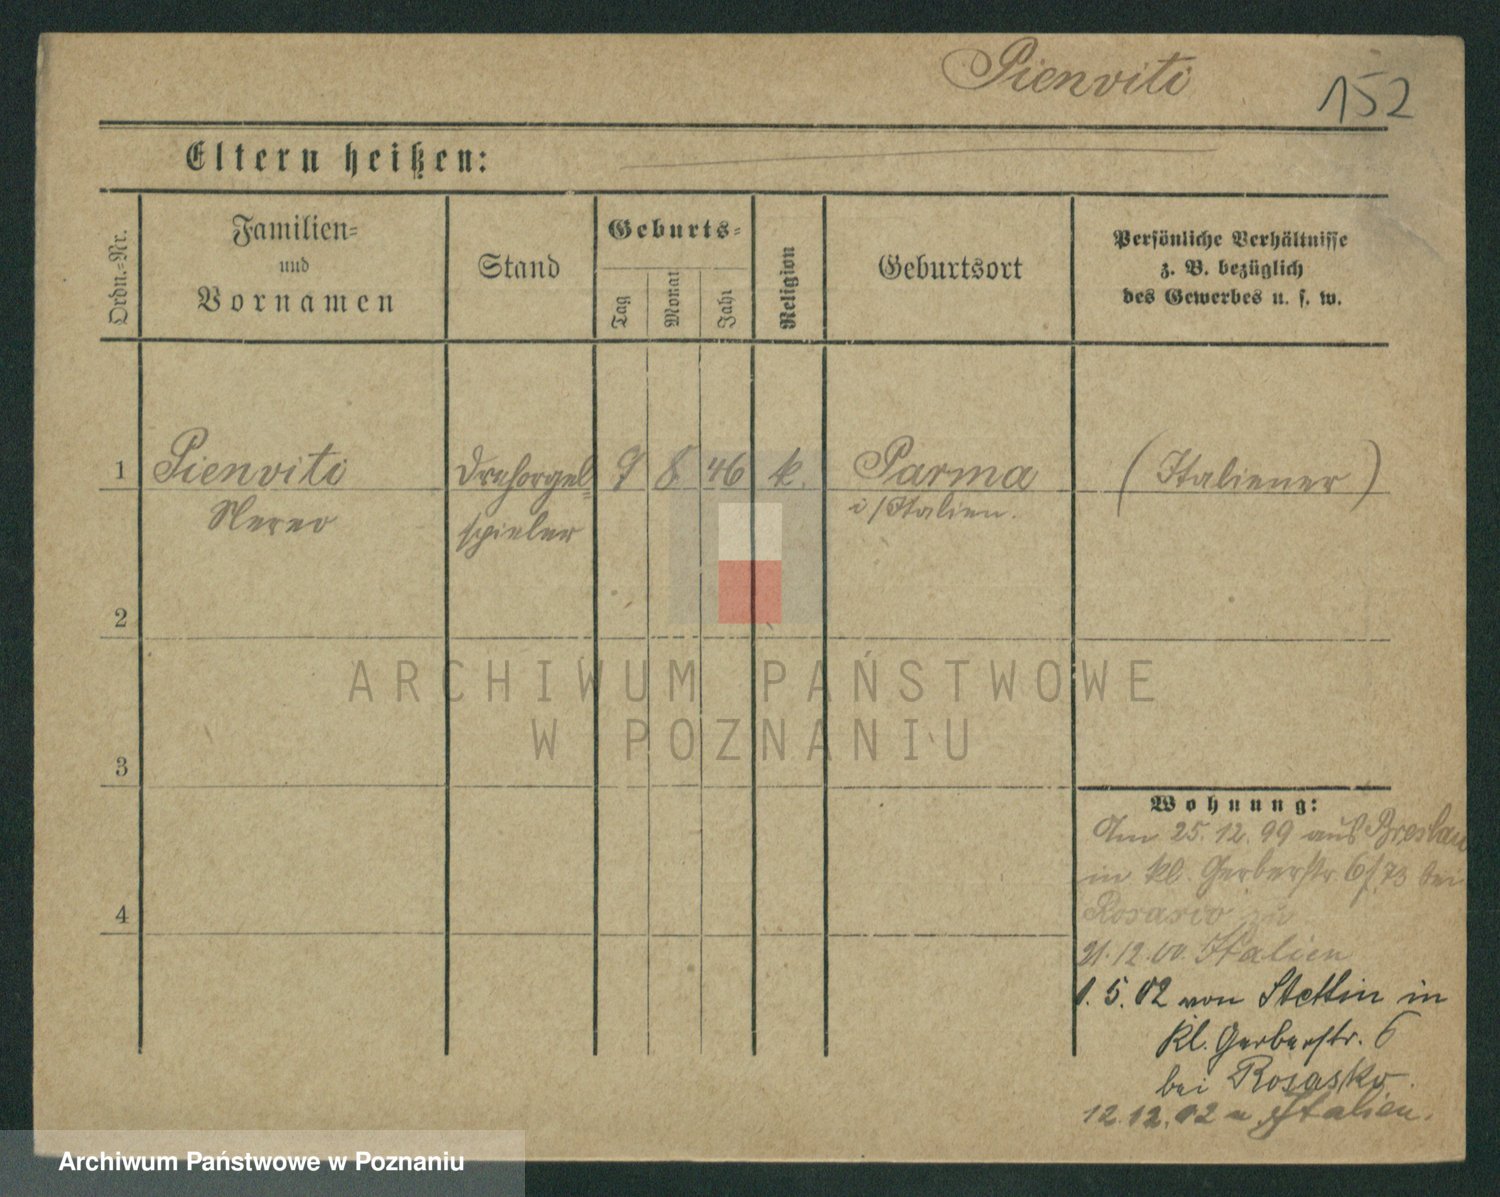 Pienviti
152
Eltern heißen:
Ordn.=Nr.
Familien=
und
Vornamen
Stand
Geburts=
Tag
Monat
Jahr
Religion
Geburtsort
Persönliche Verhältnisse
z. B. bezüglich
des Gewerbes u. s. w.
1
Pienviti
Nereo
Drehorgel=
spieler
9 8. 46 k.
Parma
i/Italien.
(Italiener)
2
3
4
ARCHIWUM PAŃSTWOWE
W POZNANIU
Wohnung:
Am 25.12.99 aus Breslau
in kl. Gerberstr. 6 / 73 bei
Rosasco zu
21.12.00 Italien
1.5.02 von Stettin in
kl. Gerberstr. 6
bei Rosasko.
12.12.02 n. Italien.
Archiwum Państwowe w Poznaniu